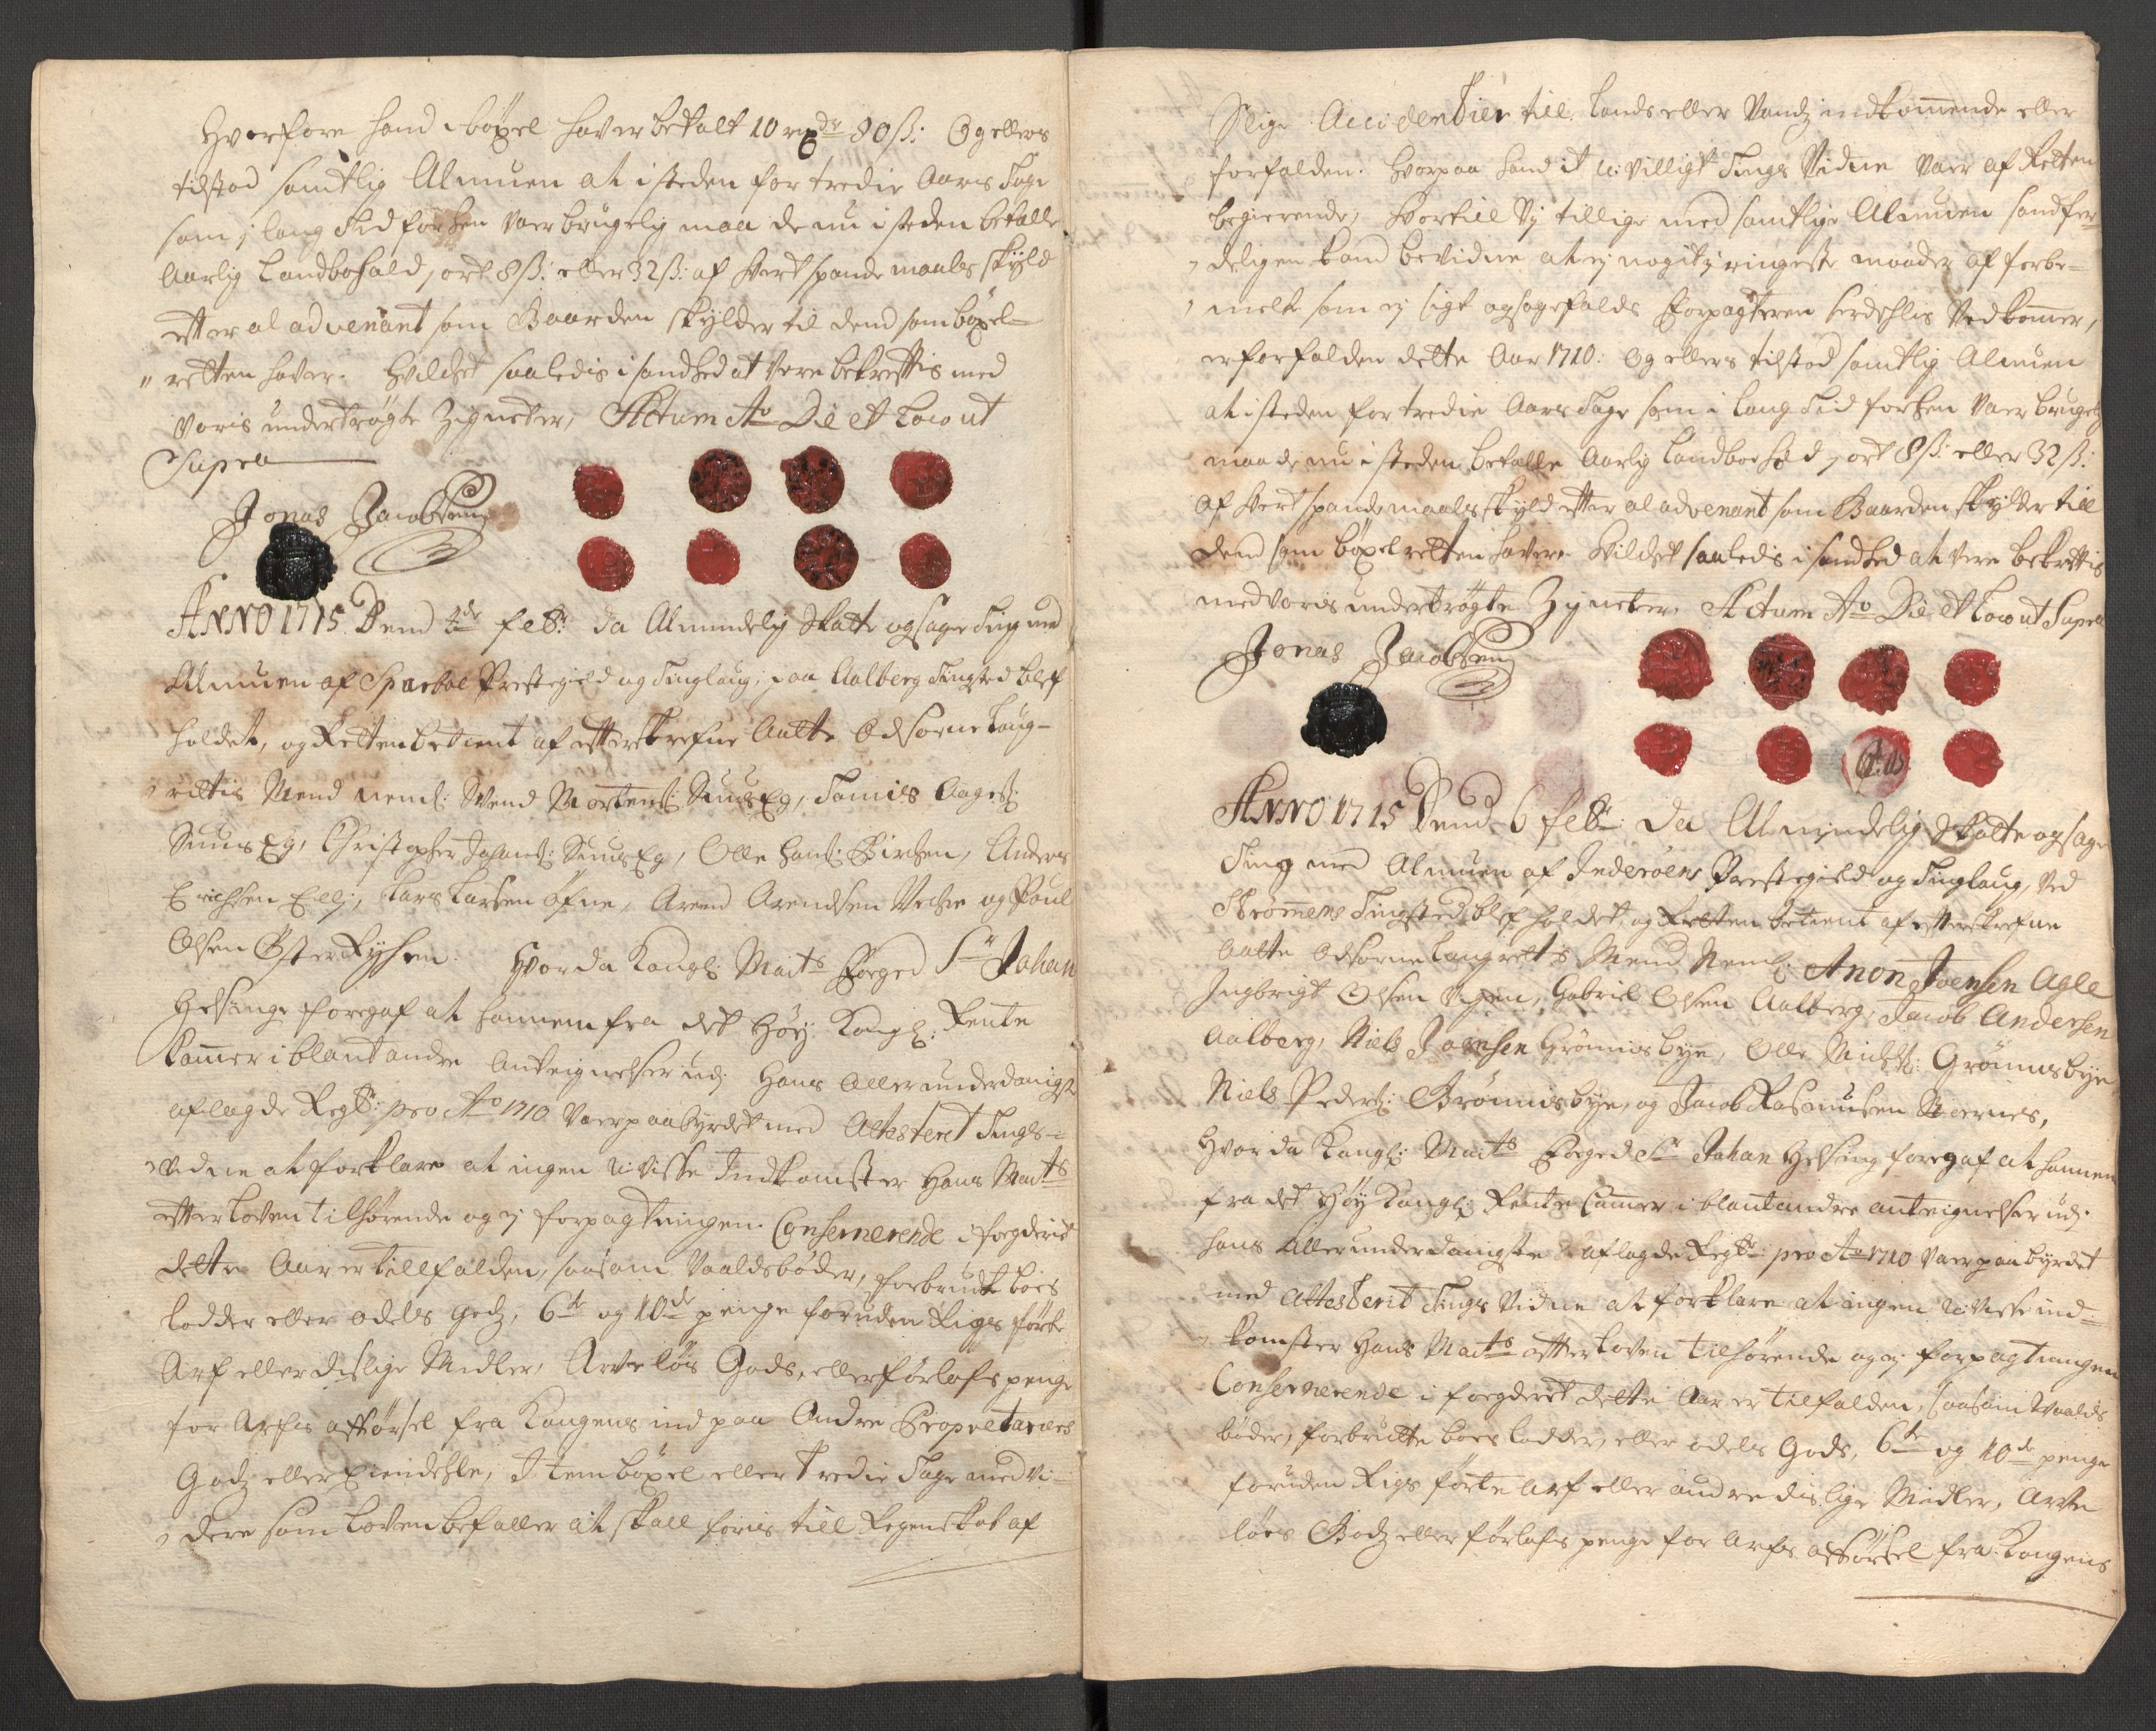 Hvorfore hand i böxel haver betalt 10 rxdr 80 ß: Og ellers
tilstod samtlig Almuen at i steden for tredie Aars Tage
som j lang Tid forhen var brugelig maa de nu i steden betalle
Aarlig Landbohold, ort 8 ß: eller 32 ß: af hvert spande maals skyld
etter al advenant som Gaarden skylder til dend som böxel-
retten haver. Hvilchet saaledis i sandhed at vere bekreftis med
voris undertrögte Zigneter, Actum Ao Die et Loco ut
Supra
Jonas Jacobsen
ANNO 1715 Dend 4de febr: da Almindelig Skatte og Sage Ting med
Almuen af Sparboe Prestegield og Tinglaug, paa Aalberg Tingsted blef
holdet, og Retten betient af efterskrefne Aatte Edsorne Laug-
rettis Mend neml: Svend Mortens: , Tomes Aages:
, Christopher Johans: , Olle Hans: Birchen, Anders
Erichsen Ellj, Lars Larsen öfne, Arend Arendsen Vechre og Poul
Olsen Öster Ryhsen. Hvor da Kongl: Maits Foeged Sr Johan
Helsinge foregaf at hannem fra det Höy Kongl: Rente
Cammer i blant andre Antegnelser udj Hans Allerunderdanigst
aflagde Regsk: pro Ao 1710 var paabyrdet med Attesteret Tings-
vidne at forklare at ingen Uvisse Indkomster Hans Maits
etter Loven tilhörende og ej forpagtningen Consernerende i foegderiet
dette Aar er tillfalden, saasom Vaaldsböder, forbrudte boes
lodder eller odels Godz, 6te og 10de penge foruden Rigs förte
Arf eller dislige Midler, Arvelös Gods, eller forlofs penge
for Arfvs afförsel fra Kongens ind paa Andre Proprietariers
Godz eller Eiendehle, Item böxel eller Tredie Tage med vi-
dere som Loven befaller at skall föris till Regenskab af
Slige Accidentier till Lands eller Vandz indkommende eller
forfalden. Hvorpaa hand it u-villigt Tings Vidne var af Retten
begierende, Hvortill Vj tillige med samtlige Almuen sandfer-
deligen kand bevidne at ej nogit j ringeste maader af forbe-
melte som ej sigt og sagefalds Forpagteren serdehlis Vedkommer,
er forfalden dette Aar 1710: Og ellers tilstod samtlig Almuen
at i steden for tredie Aars Tage som i lang Tid forhen var brugelig
maa de nu i steden betalle Aarlig Landbohold, ort 8 ß: eller 32 ß:
af hvert spande maals skyld etter al advenant som Gaarden skylder till
dend som böxel retten haver. Hvilchet saaledis i sandhed at vere bekreftis
med voris undertrögte Zigneter. Actum Ao Die et Loco ut Supra
Jonas Jacobsen
ANNO 1715 Dend 6 febr: da Almindelig Skatte og Sage
Ting med Almuen af Inderöens Prestegield og Tinglaug, ved
Strömmens Tingsted blef holdet, og Retten betient af efterskrefne
Aatte Edsorne Laugrettis Mend Neml: Anon Joensen Agle
Ingbrigt Olsen Vigen, Gabriel Olsen Aalberg, Jacob Andersen
Aalberg, Niels Joensen Grönnisbye, Olle Nielss: Grönnisbye
Niels Peders: Grönnisbye, og Jacob Rasmusen Stornes,
Hvor da Kongl: Maits Foeged Sr Johan Helsing foregaf at hannem
fra det Höy Kongl: Rente Cammer i blant andre antegnelser udj
hans Allerunderdanigste aflagde Regsk: pro Ao 1710 var paabyrdet
med Attesterit Tings Vidne at forklare at ingen Uvisse ind-
komster Hans Maits etter Loven tilhörende og ej forpagtningen
Consernerende i foegderiet dette Aar er tilfalden, saasom Vaalds
böder, forbrutte boes lodder, eller odels Gods, 6te og 10de penge
foruden Rigs förte Arf eller andre dislige Midler, Arve
löes Godz eller forlofs penge for Arfs afförsel fra Kongens